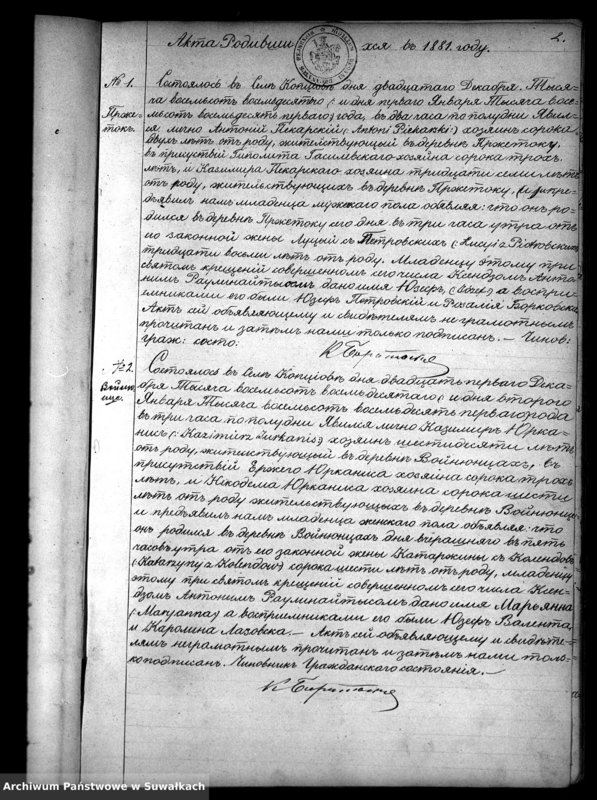 2.
Акта Родивши хся въ 1881. году.
№ 1.
Пржетокъ.
Состоялось въ Селѣ Копціовѣ дня двадцатаго Декабря. Тыся-
ча восемьсотъ восемьдесятаго (: и дня перваго Января Тысяча восе-
мьсотъ восемьдесятъ перваго) года, въ два часа по полудни Явил-
ся лично Антоній Пекарскій (: Antoni Piekarski :) хозяинъ сорока
двухъ лѣтъ отъ роду, жительствующій въ деревнѣ Пржетоку,
въ присутствіи Гиполита хозяина сорока трохъ
лѣтъ, и Казимира Пекарскаго хозяина тридцати семи лѣтъ
отъ роду, жительствующихъ въ деревнѣ Пржетоку, и пре-
дъявилъ намъ младенца мужескаго пола объявляя: что онъ ро-
дился въ деревнѣ Пржетоку его дня въ три часа утра отъ
его законной жены Луціи съ Петровскихъ (: Łucyi z Piotrowskich
тридцати восьми лѣтъ отъ роду. Младенцу этому при
святомъ крещеніи совершенномъ его числа Ксендзомъ Анто-
ніемъ Раулинайтысомъ дано имя Юзефъ, (Józef) а воспрі-
емниками его были Юзефъ Петровскій и Розалія Борковска
Актъ сей объявляющему и свидѣтелямъ неграмотнымъ
прочитанъ и затѣмъ нами только подписанъ. — Чинов:
граж: состо:
№ 2.
Войнюнце.
Состоялось въ Селѣ Копціовѣ дня двадцать перваго Дека-
бря Тысяча восемьсотъ восемьдесятаго (: и дня второго
Января Тысяча восемьсотъ восемьдесятъ перваго года
въ три часа по полудни Явился лично Казимиръ Юрка-
нисъ (: Kazimierz Jurkanis) хозяинъ шестидесяти лѣтъ
отъ роду, жительствующій въ деревнѣ Войнюнцахъ, въ
присутствіи Ержего Юрканиса хозяина сорока трохъ
лѣтъ, и Никодема Юрканиса хозяина сорока шести
лѣтъ отъ роду жительствующихъ въ деревнѣ Войнюнцахъ
и предъявилъ намъ младенца женскаго пола объявляя: что
онъ родился въ деревнѣ Войнюнцахъ дня вчерашняго въ пять
часовъ утра отъ его законной жены Катаржины съ Колендовъ
(Katarzyny z Kolendow) сорока шести лѣтъ отъ роду, младенцу
этому при святомъ крещеніи совершенномъ его числа Ксен-
дзомъ Антоніемъ Раулинайтысомъ дано имя Марьянна
(Maryanna) а воспріемниками его были Юзефъ Валента
и Каролина Лазовска. — Актъ сей объявляющему и свидѣте-
лямъ неграмотнымъ прочитанъ и затѣмъ нами толь-
ко подписанъ. Чиновникъ Гражданскаго состоянія. —
Archiwum Państwowe w Suwałkach